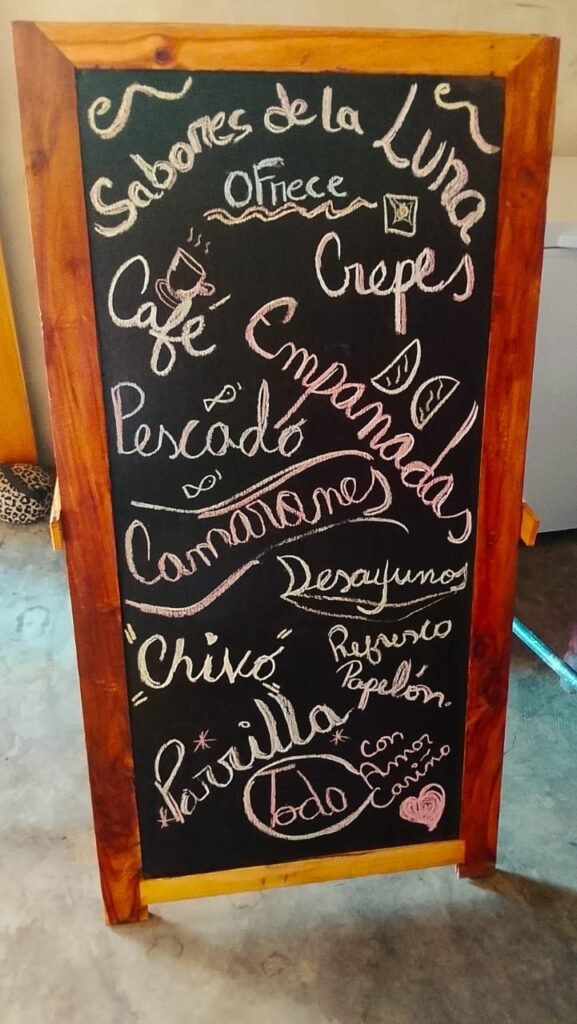 Sabores de la Luna
OFrece
Café
Crepes
Empanadas
Pescado
Camarones
Desayunos
"Chivo"
Refresco
Papelón.
Parrilla
Todo
con
Amor
Cariño